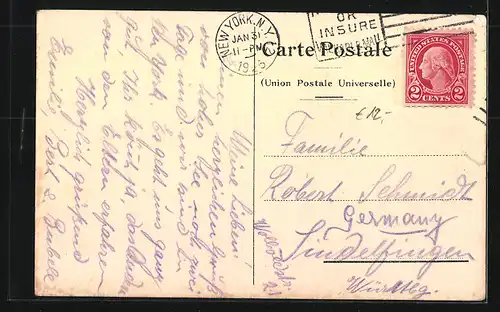 NEW YORK, N.Y.
JAN 31
11-PM
1925
OR
INSURE
Carte Postale
(Union Postale Universelle)
UNITED STATES POSTAGE
2 CENTS 2
€ 12,-
Familie
Robert Schmidt
Germany
Sindelfingen
Württbg.
Meine Lieben!
herzlichen Gruß
von hoher See noch zwei
Tage und wir sind in
New York. Es geht uns ganz
gut,
von den Eltern erfahren
Herzlich grüßend
Emilie, Bert &